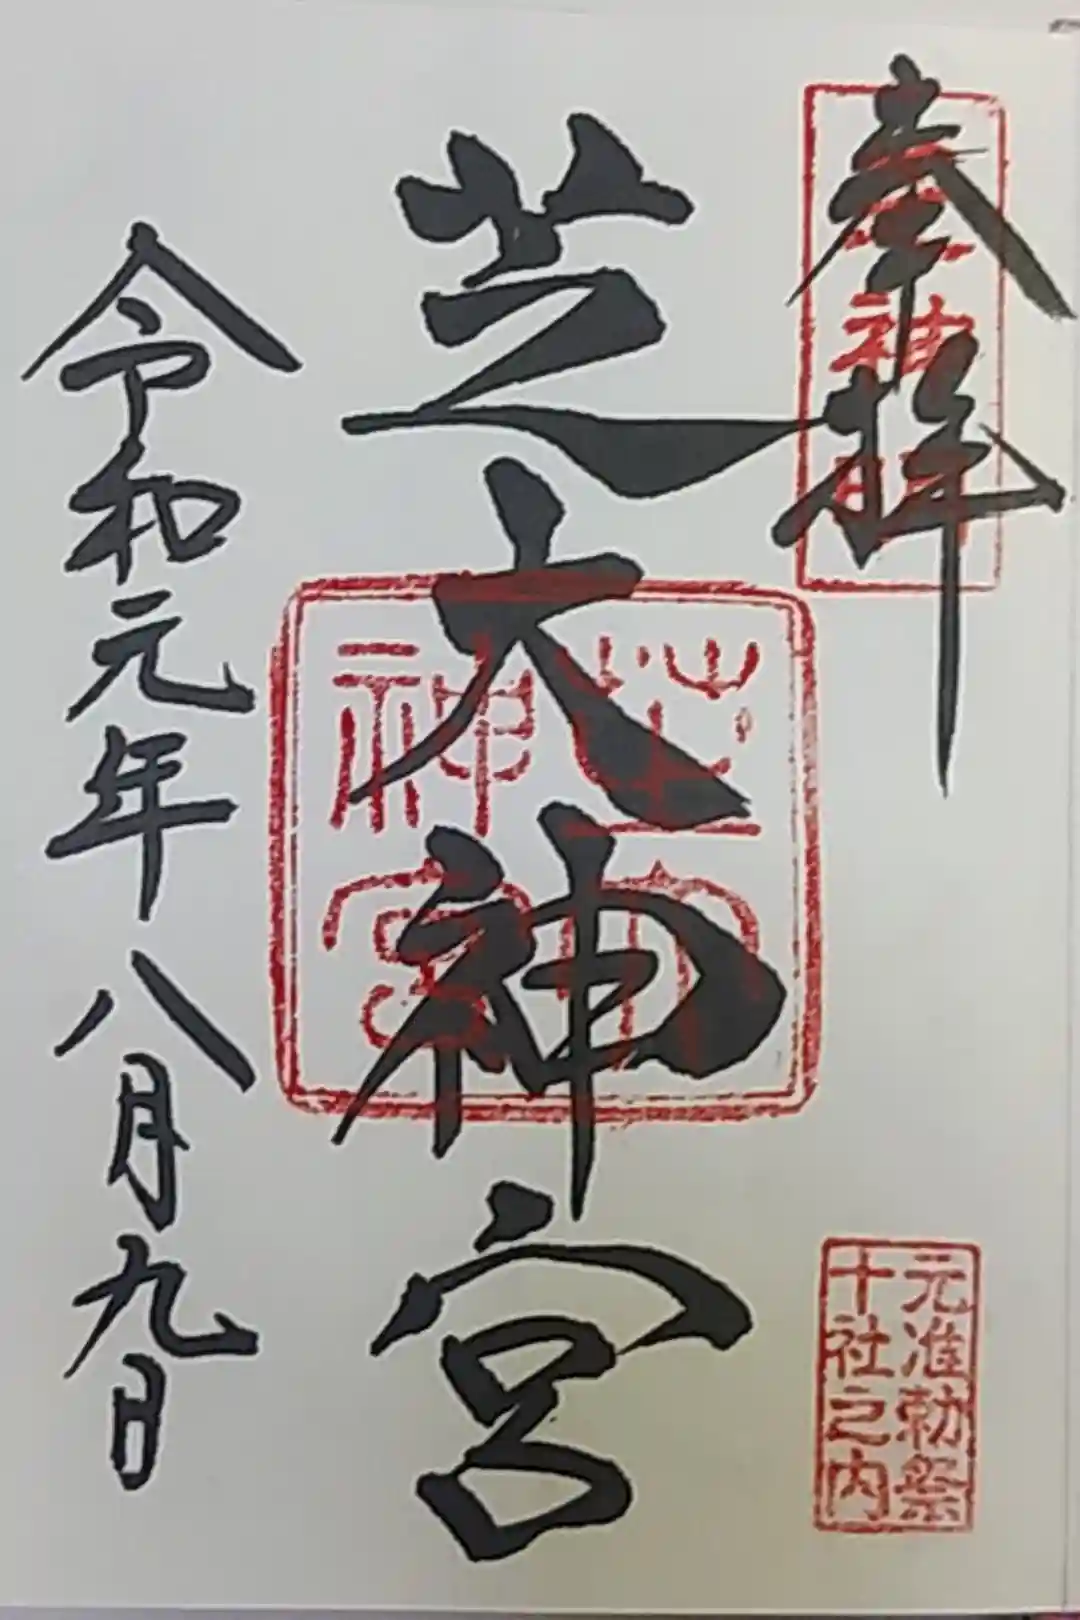 奉拝
芝大神宮
芝大神宮
令和元年八月九日
元准勅祭
十社之内